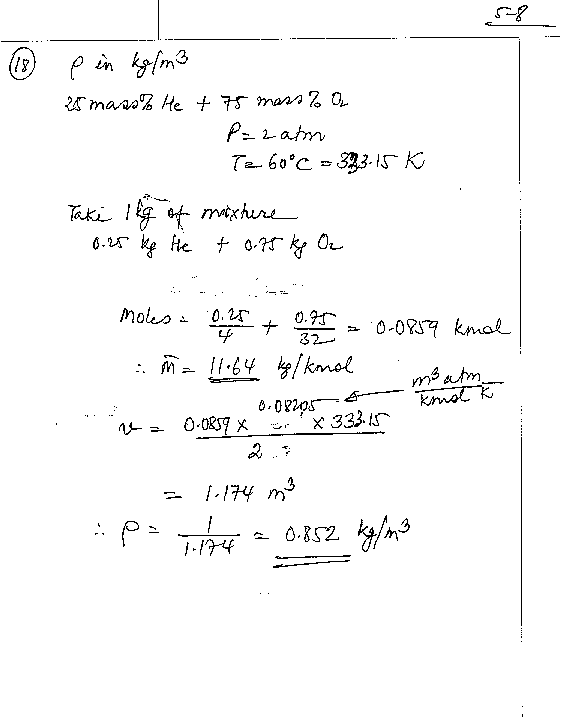 5-8
(18) ρ in kg/m3
25 mass% He + 75 mass % O2
P = 2 atm
T = 60°C = 333.15 K
Take 1 kg of mixture
0.25 kg He + 0.75 kg O2
Moles = 0.25/4 + 0.75/32 = 0.0859 kmol
∴ m̄ = 11.64 kg/kmol
0.08205 ← m3 atm / kmol K
v = 0.0859 × 0.08205 × 333.15 / 2
= 1.174 m3
∴ ρ = 1/1.174 = 0.852 kg/m3